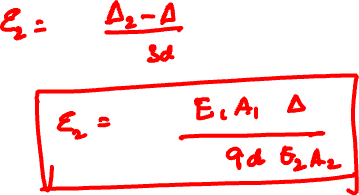 ε₂ = (Δ₂ - Δ) / 3d
ε₂ = (E₁ A₁ Δ) / (9d E₂ A₂)